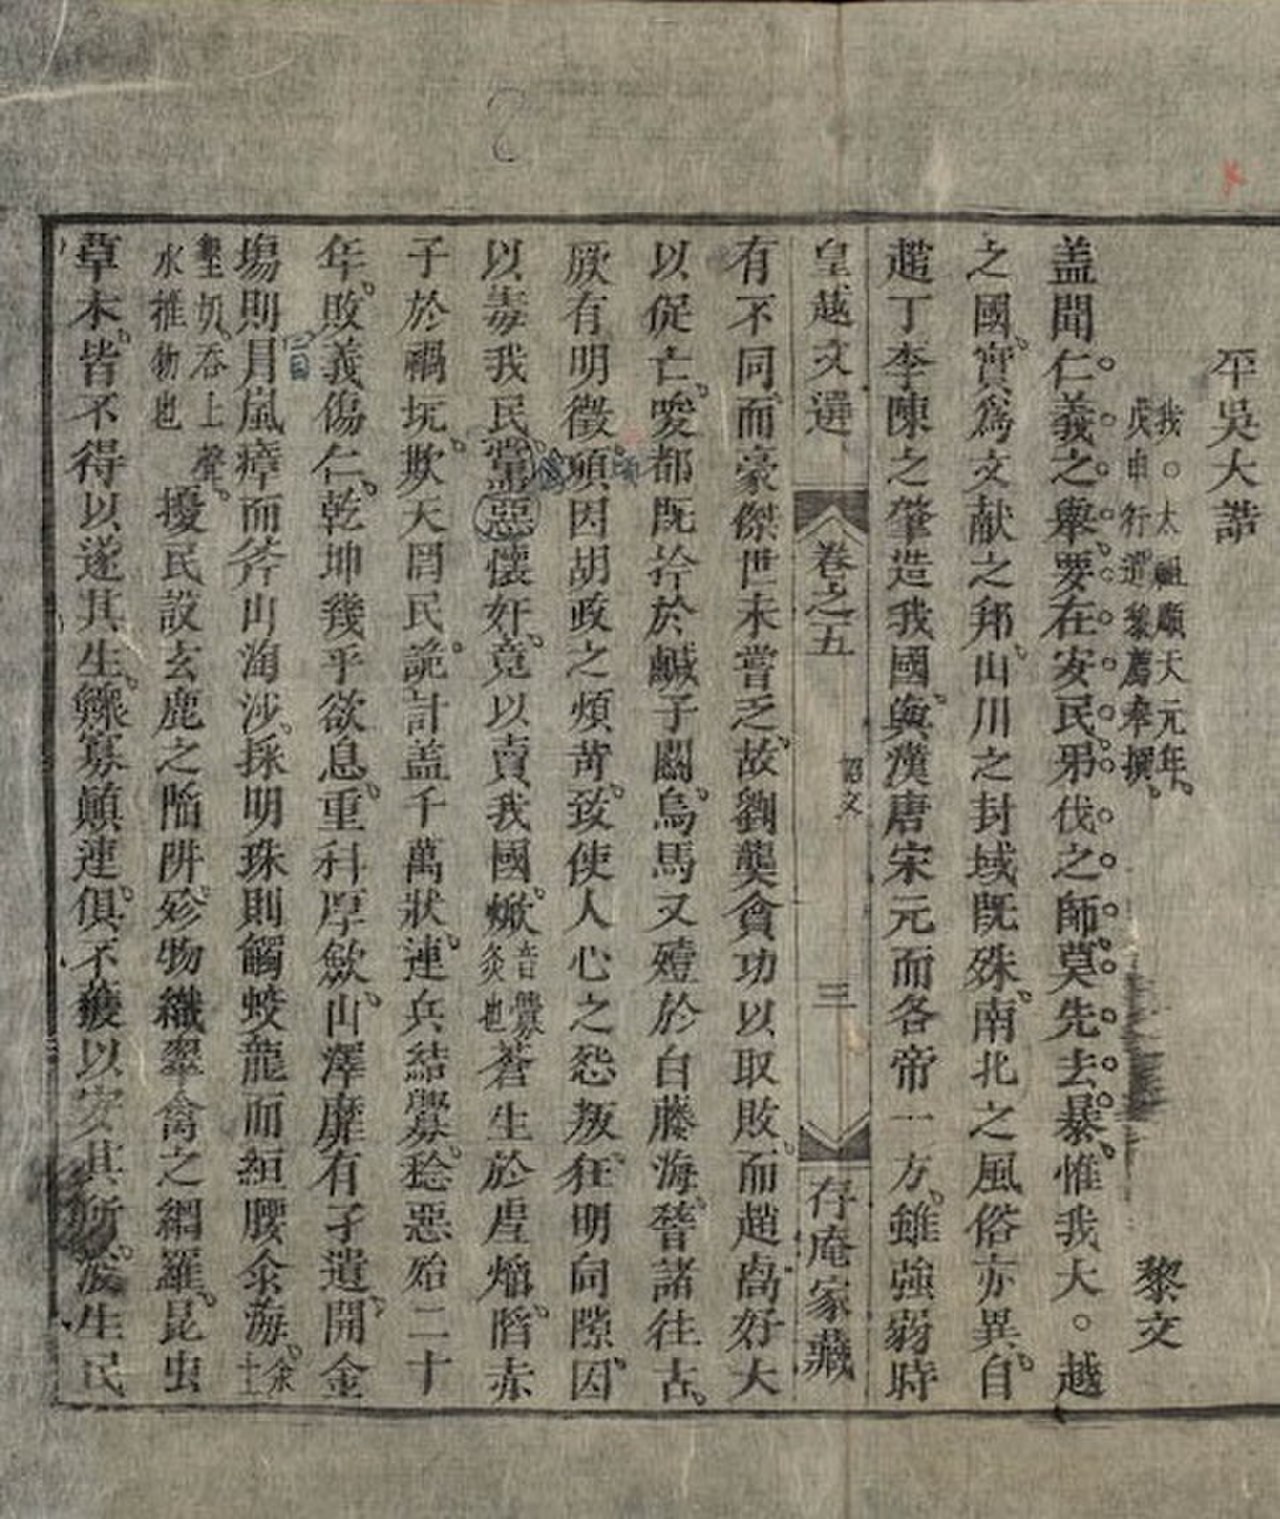 平吳大誥
我○太祖順天元年
戊申行遣黎薦奉撰
黎文
盖聞仁義之舉要在安民弔伐之師莫先去暴惟我大○越
之國實爲文献之邦山川之封域既殊南北之風俗亦異自
趙丁李陳之肇造我國與漢唐宋元而各帝一方雖強弱時
皇越文選 卷之五 詔文 三 存庵家藏
有不同而豪傑世未嘗乏故劉龑貪功以取敗而趙卨好大
以促亡唆都既拎於鹹子關烏馬又殪於白藤海稽諸往古
厥有明徵頃因胡政之煩苛致使人心之怨叛狂明向隙因
以毒我民黨惡懷奸竟以賣我國焮音釁炙也蒼生於虐焰陷赤
子於禍坑欺天罔民詭計盖千萬狀連兵結釁稔惡殆二十
年敗義傷仁乾坤幾乎欲息重科厚歛山澤靡有孑遺開金
塲則冐嵐瘴而斧山淘沙採明珠則觸蛟龍而絙腰汆海汆土
壑切吞上聲水推物也擾民設玄鹿之陷阱殄物織翠禽之網羅昆虫
草木皆不得以遂其生鰥寡顛連俱不獲以安其所浚生民